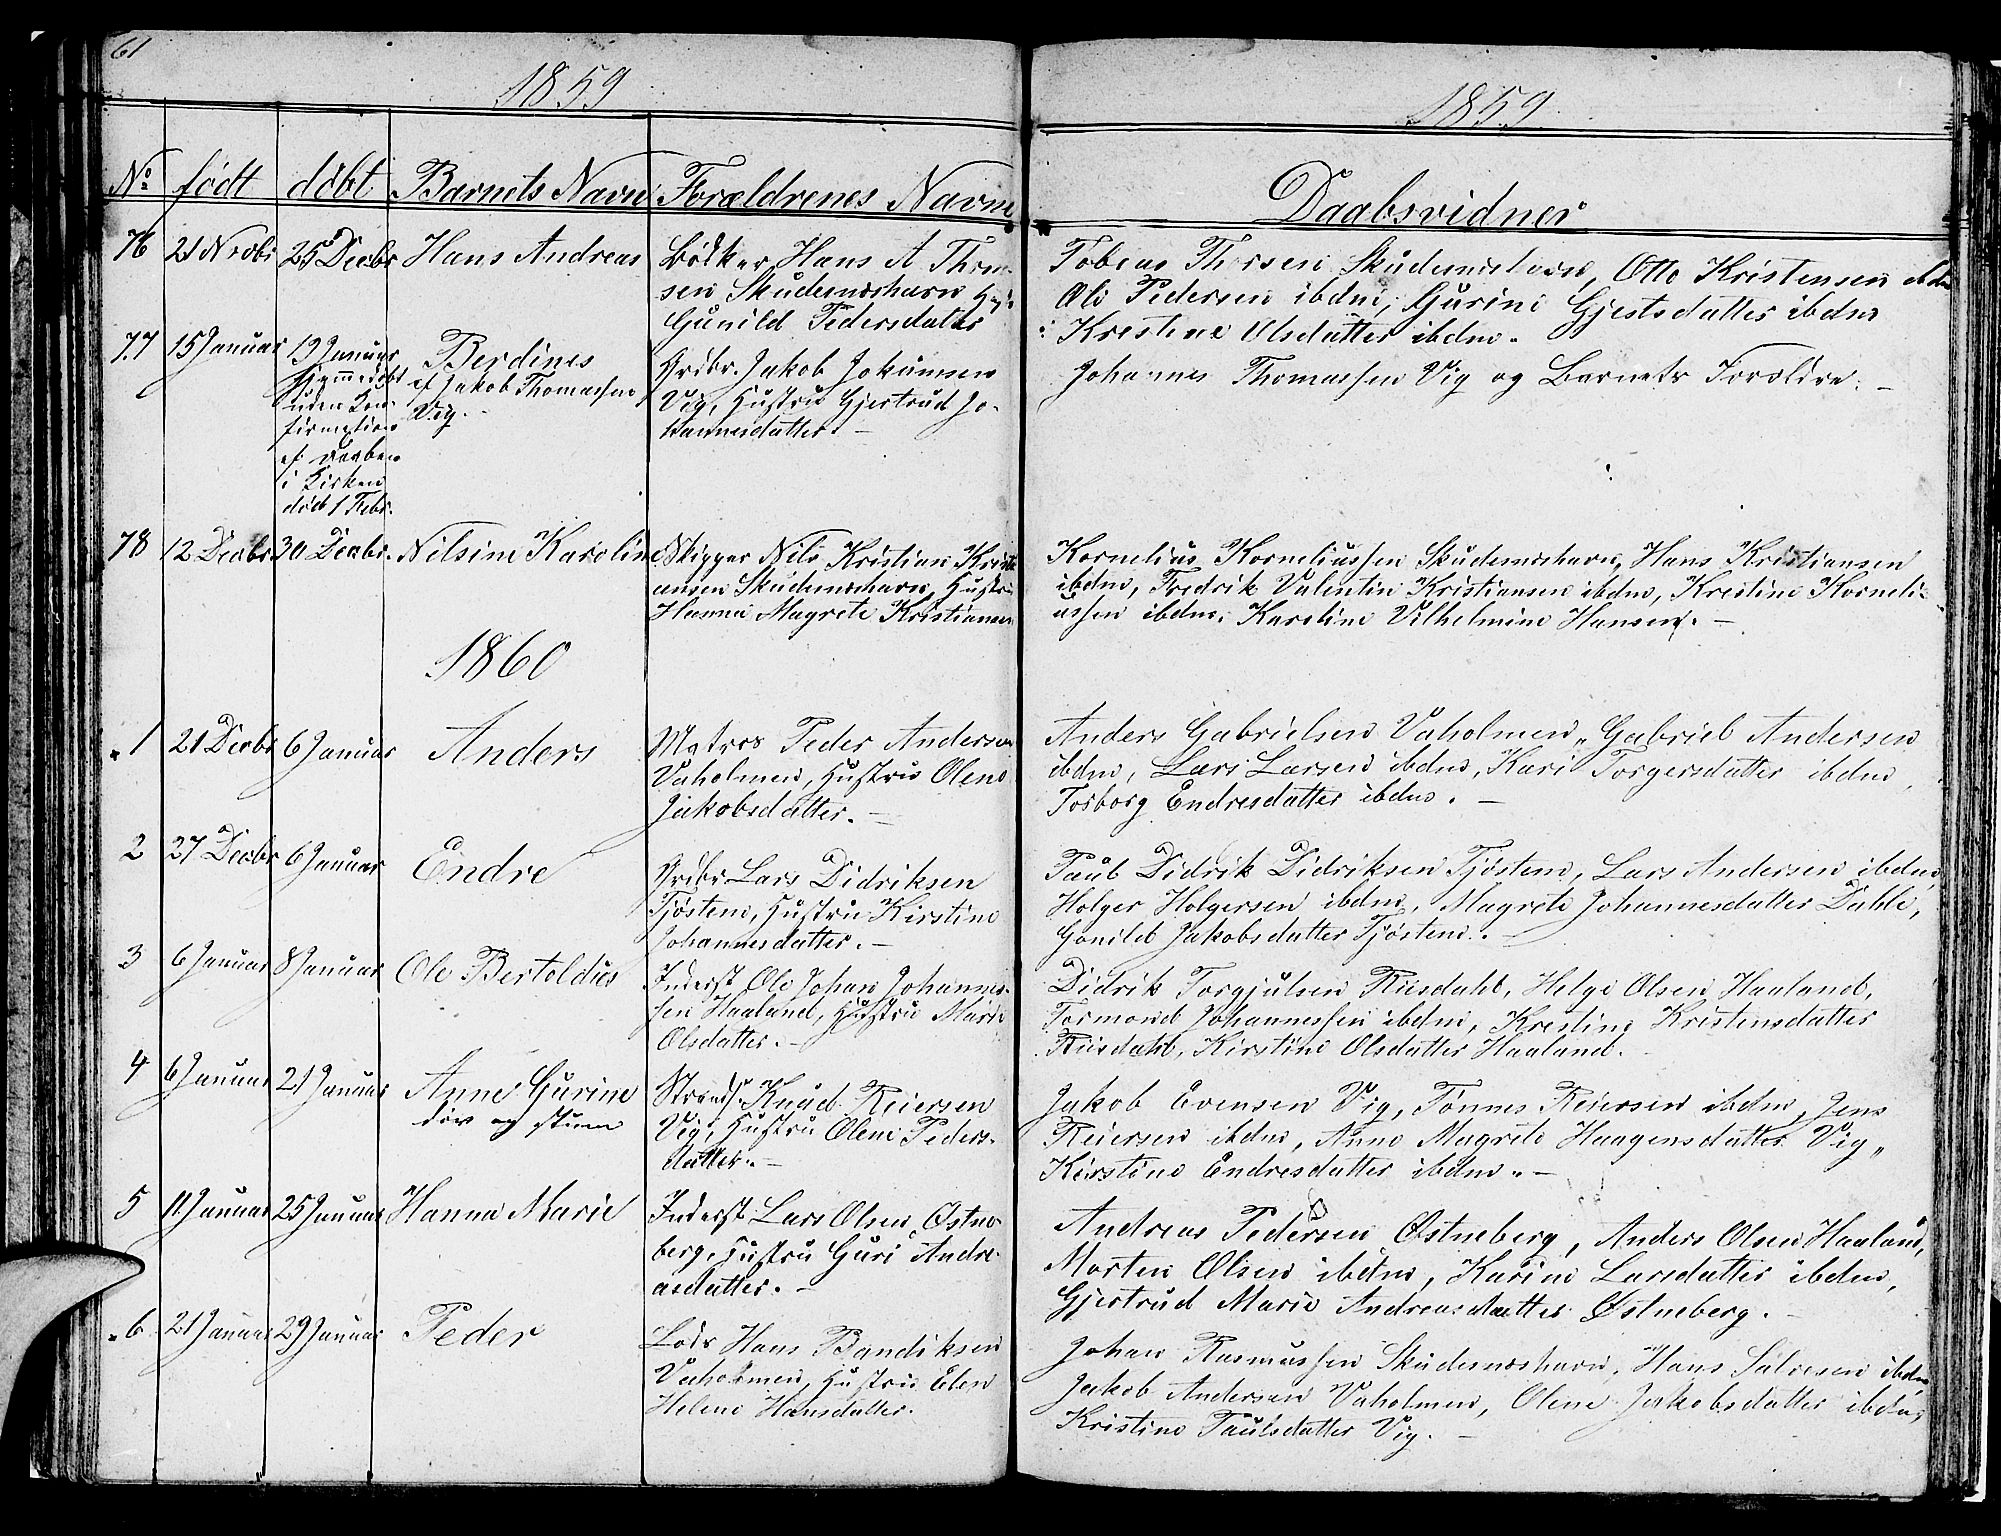 61
1859
1859
No født døbt Barnets Navn Forældrenes Navne
Daabsvidner
76 21 Novbr 25 Decbr Hans Andreas Bødker Hans A Thom-
sen Skudesnæshavn
Gunild Pedersdatter
Tobias Thorsen Skudesnæshavn, Otto Kristensen ibdm
Ole Pedersen ibdm, Gurine Gjestsdatter ibdm
Kristene Olsdatter ibdm.
77 15 Januar 19 Januar
hjemmedøbt
uden Kon-
firmation
af Daaben
i Kirken
død 1 Febr.
Berdines
af Jakob Thomassen
Vig.
Grdbr. Jakob Jokumsen
Vig, Hustru Gjertrud Jo-
hannesdatter. -
Johannes Thomassen Vig og Barnets Forældre. -
78 12 Decbr 30 Decbr. Nilsine Karoline Skipper Nils Kristian Kristi-
ansen Skudesnæshavn, Hustru
Hanna Magrete Kristiansen
Kornelius Korneliussen Skudesnæshavn, Hans Kristiansen
ibdm, Fredrik Valentin Kristiansen ibdm, Kristine Korneli-
ussen ibdm, Karoline Vilhelmine Hansen. -
1860
1 21 Decbr 6 Januar Anders Matros Peder Andersen
Vaholmen, Hustru Olene
Jakobsdatter. -
Anders Gabrielsen Vaholmen, Gabriel Andersen
ibdm, Lars Larsen ibdm, Kari Torgersdatter ibdm,
Torborg Endresdatter ibdm. -
2 27 Decbr 6 Januar Endre Grdbr Lars Didriksen
Tjøstem, Hustru Kirstine
Johannesdatter. -
Paul Didrik Didriksen Tjøstem, Lars Andersen ibdm,
Holger Holgersen ibdm, Magrete Johannesdatter Dahle,
Gonild Jakobsdatter Tjøstem. -
3 6 Januar 8 Januar Ole Bertoldus Inderst Ole Johan Johannes-
sen Haaland, Hustru Marie
Olsdatter. -
Didrik Torgjulsen Risdahl, Helge Olsen Haaland,
Tormond Johannessen ibdm, Krestine Kristensdatter
Risdahl, Kirstine Olsdatter Haaland. -
4 6 Januar 21 Januar Anne Gurine
døv og stum
Strands. Knud Reiersen
Vig, Hustru Olene Peders-
datter. -
Jakob Evensen Vig, Tønnes Reiersen ibdm, Jens
Reiersen ibdm, Anne Magrete Haagensdatter Vig,
Kirstine Endresdatter ibdm. -
5 11 Januar 25 Januar Hanna Marie Inderst Lars Olsen Østne-
berg, Hustru Guri Andre-
asdatter. -
Andreas Pedersen Østneberg, Anders Olsen Haaland,
Morten Olsen ibdm, Karine Larsdatter ibdm,
Gjertrud Marie Andreasdatter Østneberg. -
6 21 Januar 29 Januar Peder Lods Hans Bendiksen
Vaholmen, Hustru Elen
Helene Hansdatter.
Johan Rasmussen Skudesnæshavn, Hans Salvesen ibdm,
Jakob Andersen Vaholmen, Olene Jakobsdatter ibdm,
Kristine Paulsdatter Vig. -